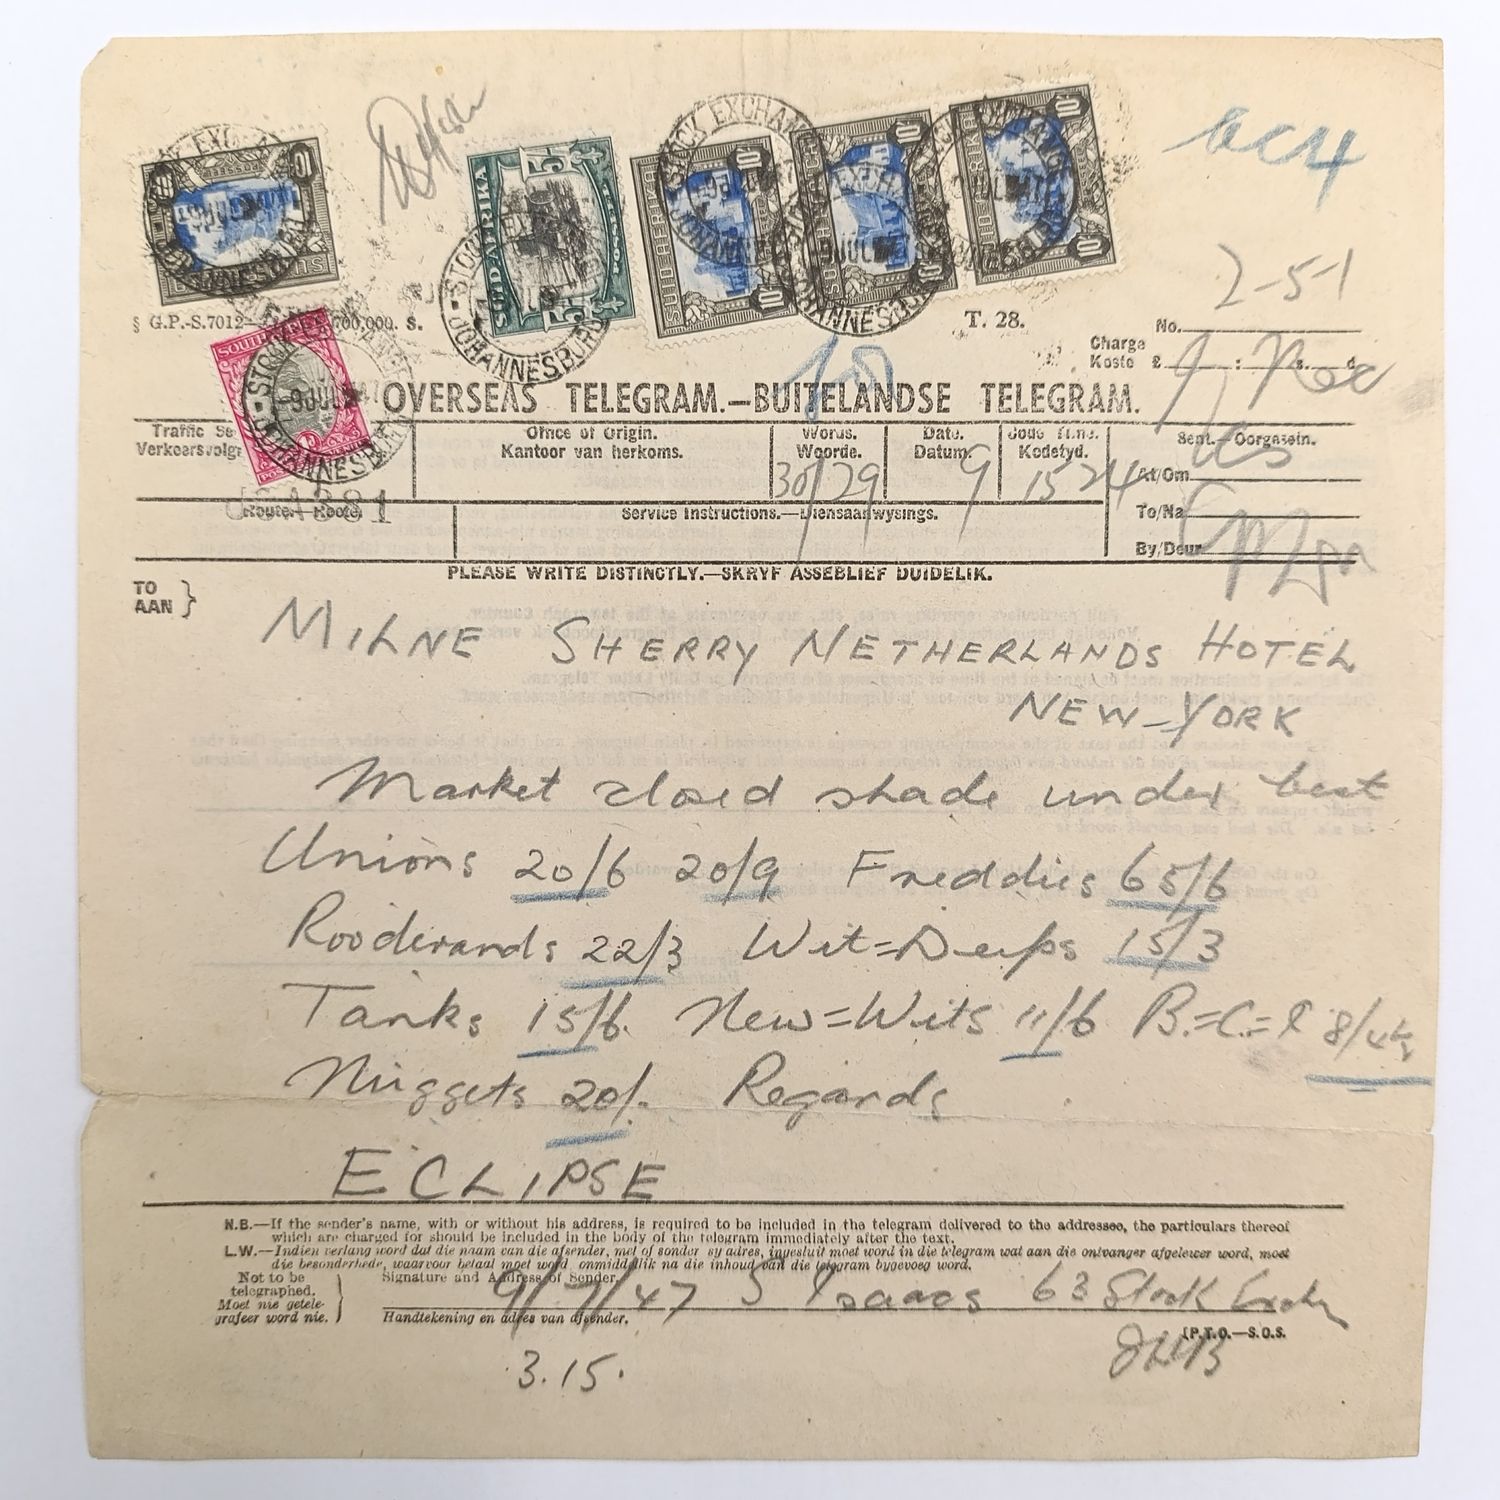 STOCK EXCHANGE
JOHANNESBURG
-9 JUL 47
SUID-AFRIKA
5/-
10
SOUTH AFRICA
1D
§ G.P.-S.7012— 700,000. S.
T. 28.
2-51
No.
Charge
Koste £ : s. d.
OVERSEAS TELEGRAM.—BUITELANDSE TELEGRAM.
Traffic Se
Verkeersvolg
Office of Origin.
Kantoor van herkoms.
Words.
Woorde.
30/29
Date.
Datum.
9
Code Time.
Kodetyd.
1524
Sent.—Oorgesein.
At/Om
To/Na
By/Deur
Route.—Roete.
Service Instructions.—Diensaanwysings.
PLEASE WRITE DISTINCTLY.—SKRYF ASSEBLIEF DUIDELIK.
TO
AAN }
MILNE SHERRY NETHERLANDS HOTEL
NEW-YORK
Market closed shade under best
Unions 20/6 20/9 Freddies 65/6
Rooderands 22/3 Wit=Deeps 15/3
Tanks 15/6. New=Wits 11/6 B.=C.= 8/4½
Nuggets 20/. Regards
ECLIPSE
N.B.—If the sender's name, with or without his address, is required to be included in the telegram delivered to the addressee, the particulars thereof
which are charged for should be included in the body of the telegram immediately after the text.
L.W.—Indien verlang word dat die naam van die afsender, met of sonder sy adres, ingesluit moet word in die telegram wat aan die ontvanger afgelewer word, moet
die besonderhede, waarvoor betaal moet word, onmiddellik na die inhoud van die telegram bygevoeg word.
Not to be
telegraphed.
Moet nie getele-
grafeer word nie. }
Signature and Address of Sender.
9/7/47 S Isaacs 63 Stock Exch
Handtekening en adres van afsender.
(P.T.O.—S.O.S.
3.15.